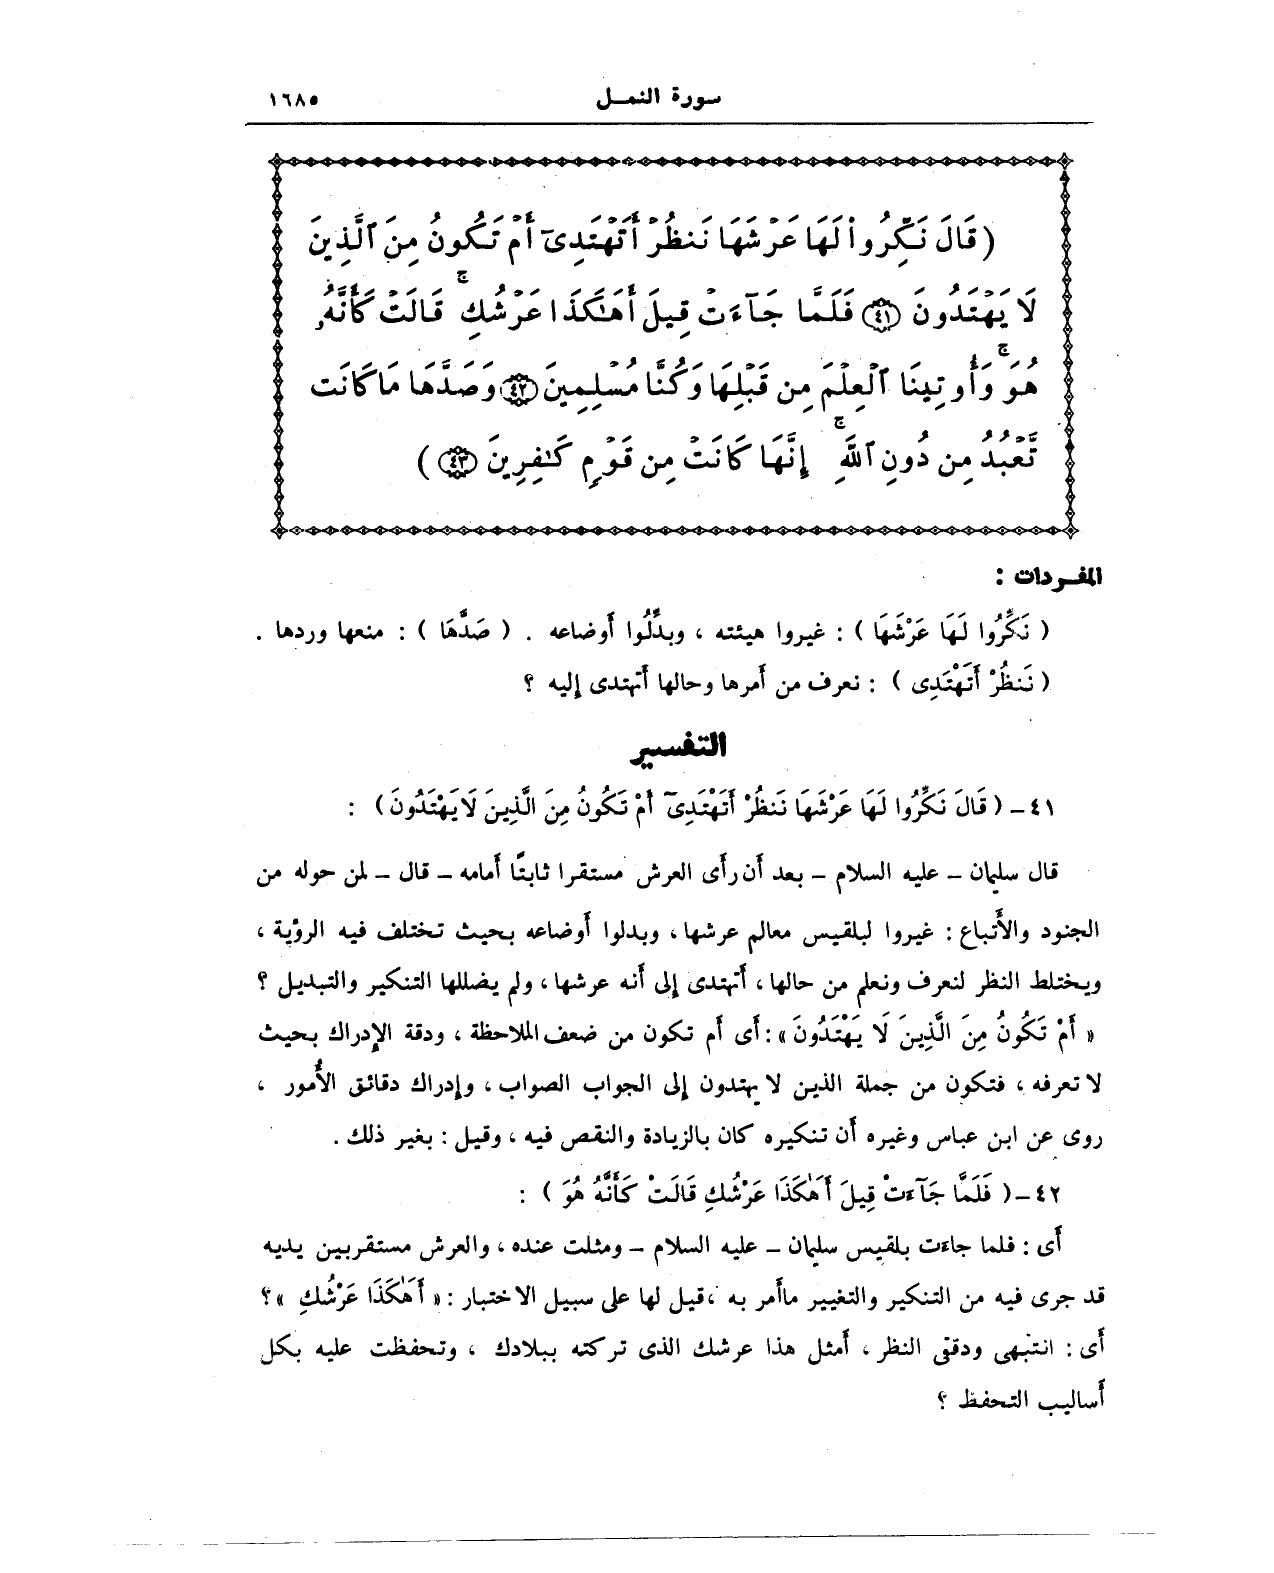 سورة النمـل ١٦٨٥
( قَالَ نَكِّرُواْ لَهَا عَرْشَهَا نَنظُرْ أَتَهْتَدِىٓ أَمْ تَكُونُ مِنَ ٱلَّذِينَ
لَا يَهْتَدُونَ ﴿٤١﴾ فَلَمَّا جَآءَتْ قِيلَ أَهَٰكَذَا عَرْشُكِ ۖ قَالَتْ كَأَنَّهُۥ
هُوَ ۚ وَأُوتِينَا ٱلْعِلْمَ مِن قَبْلِهَا وَكُنَّا مُسْلِمِينَ ﴿٤٢﴾ وَصَدَّهَا مَا كَانَت
تَّعْبُدُ مِن دُونِ ٱللَّهِ ۖ إِنَّهَا كَانَتْ مِن قَوْمٍ كَٰفِرِينَ ﴿٤٣﴾ )
المفـردات :
( نَكِّرُوا لَهَا عَرْشَهَا ) : غيروا هيئته ، وبدِّلُوا أوضاعه . ( صَدَّهَا ) : منعها وردها .
( نَنظُرْ أَتَهْتَدِى ) : نعرف من أمرها وحالها أتهتدى إليه ؟
التفسير
٤١ – ( قَالَ نَكِّرُوا لَهَا عَرْشَهَا نَنظُرْ أَتَهْتَدِىٓ أَمْ تَكُونُ مِنَ الَّذِينَ لَا يَهْتَدُونَ ) :
قال سليمان – عليه السلام – بعد أن رأى العرش مستقرا ثابتًا أمامه – قال – لمن حوله من
الجنود والأتباع : غيروا لبلقيس معالم عرشها ، وبدلوا أوضاعه بحيث تختلف فيه الرؤية ،
ويختلط النظر لنعرف ونعلم من حالها ، أتهتدى إلى أنه عرشها ، ولم يضللها التنكير والتبديل ؟
« أَمْ تَكُونُ مِنَ الَّذِينَ لَا يَهْتَدُونَ » : أى أم تكون من ضعف الملاحظة ، ودقة الإدراك بحيث
لا تعرفه ، فتكون من جملة الذين لا يهتدون إلى الجواب الصواب ، وإدراك دقائق الأُمور ،
روى عن ابن عباس وغيره أن تنكيره كان بالزيادة والنقص فيه ، وقيل : بغير ذلك .
٤٢ – ( فَلَمَّا جَآءَتْ قِيلَ أَهَٰكَذَا عَرْشُكِ قَالَتْ كَأَنَّهُ هُوَ ) :
أى : فلما جاءت بلقيس سليمان – عليه السلام – ومثلت عنده ، والعرش مستقربين يديه
قد جرى فيه من التنكير والتغيير ماأمر به ، قيل لها على سبيل الاختبار : « أَهَٰكَذَا عَرْشُكِ » ؟
أى : انتبهى ودققى النظر ، أمثل هذا عرشك الذى تركته ببلادك ، وتحفظت عليه بكل
أساليب التحفظ ؟